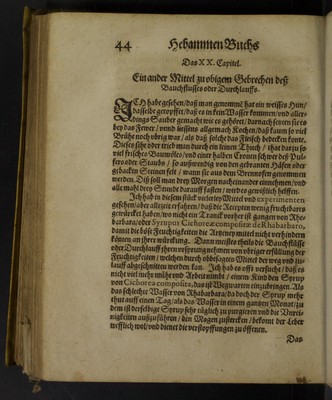 44 Hebammen Buchs
Das XX. Capitel.
Ein ander Mittel zu obigem Gebrechen deß
Bauchflusses oder Durchlauffs.
ICH habe gesehen/daß man genommē hat ein weisses Hun/
dasselbe geropfft/daß es in kein Wasser kommen/vnd aller-
dings Sauber gemacht wie es gehört/darnach setzen sie es
bey das Fewer / vnnd liessens allgemach Kochen/daß kaum so viel
Brühe noch vbrig war / als daß solche das Fleisch bedecken konte.
Diese sihe oder trieb man durch ein leinen Thuch / that darzu so
viel frisches Baumöles/vnd einer halben Cronen schwer deß Pul-
fers oder Staubs / so außwendig von den gebranten Häfen oder
gebacken Steinen felt / wann sie aus dem Brennofen genommen
werden. Diß soll man drey Morgen nacheinander einnehmen/vnd
alle mahl drey Stunde darauff fasten / wird es gewißlich helffen.
Ich hab in diesem stück vielerley Mittel vnd experimenten
gesehen/aber allezeit erfahren/daß die Recepten wenig fruchtbares
gewürcket haben/wo nicht ein Tranck vorher ist gangen von Rha-
barbara/oder Syrupus Cichoreæ compositæ de Rhabarbaro,
damit die böse Feuchtigkeiten die Artzney mittel nicht verhindern
könten an ihrer würckung. Dann meistes theils die Bauchflüsse
oder Durchläuff ihren vrsprung nehmen von vbriger erfüllung der
Feuchtigkeiten / welchen durch obbesagten Mittel der weg vnd zu-
lauff abgeschnitten worden kan. Ich hab es offt versucht / daß es
nicht viel mehr mühe vnd Arbeit nimbt / einem Kind den Syrup
von Cichorea composita, das ist Wegwarten einzubringen. Als
das schlechte Wasser von Rhabarbara/da doch der Syrup mehr
thut auff einen Tag/als das Wasser in einem gantzen Monat/zu
dem ist derselbige Syrup sehr täglich zu purgieren vnd die Vnrei-
nigkeiten außzuführen / den Magen zustercken / bekomt der Leber
trefflich wol/vnd dienet die verstopffungen zu öffenen.
Das